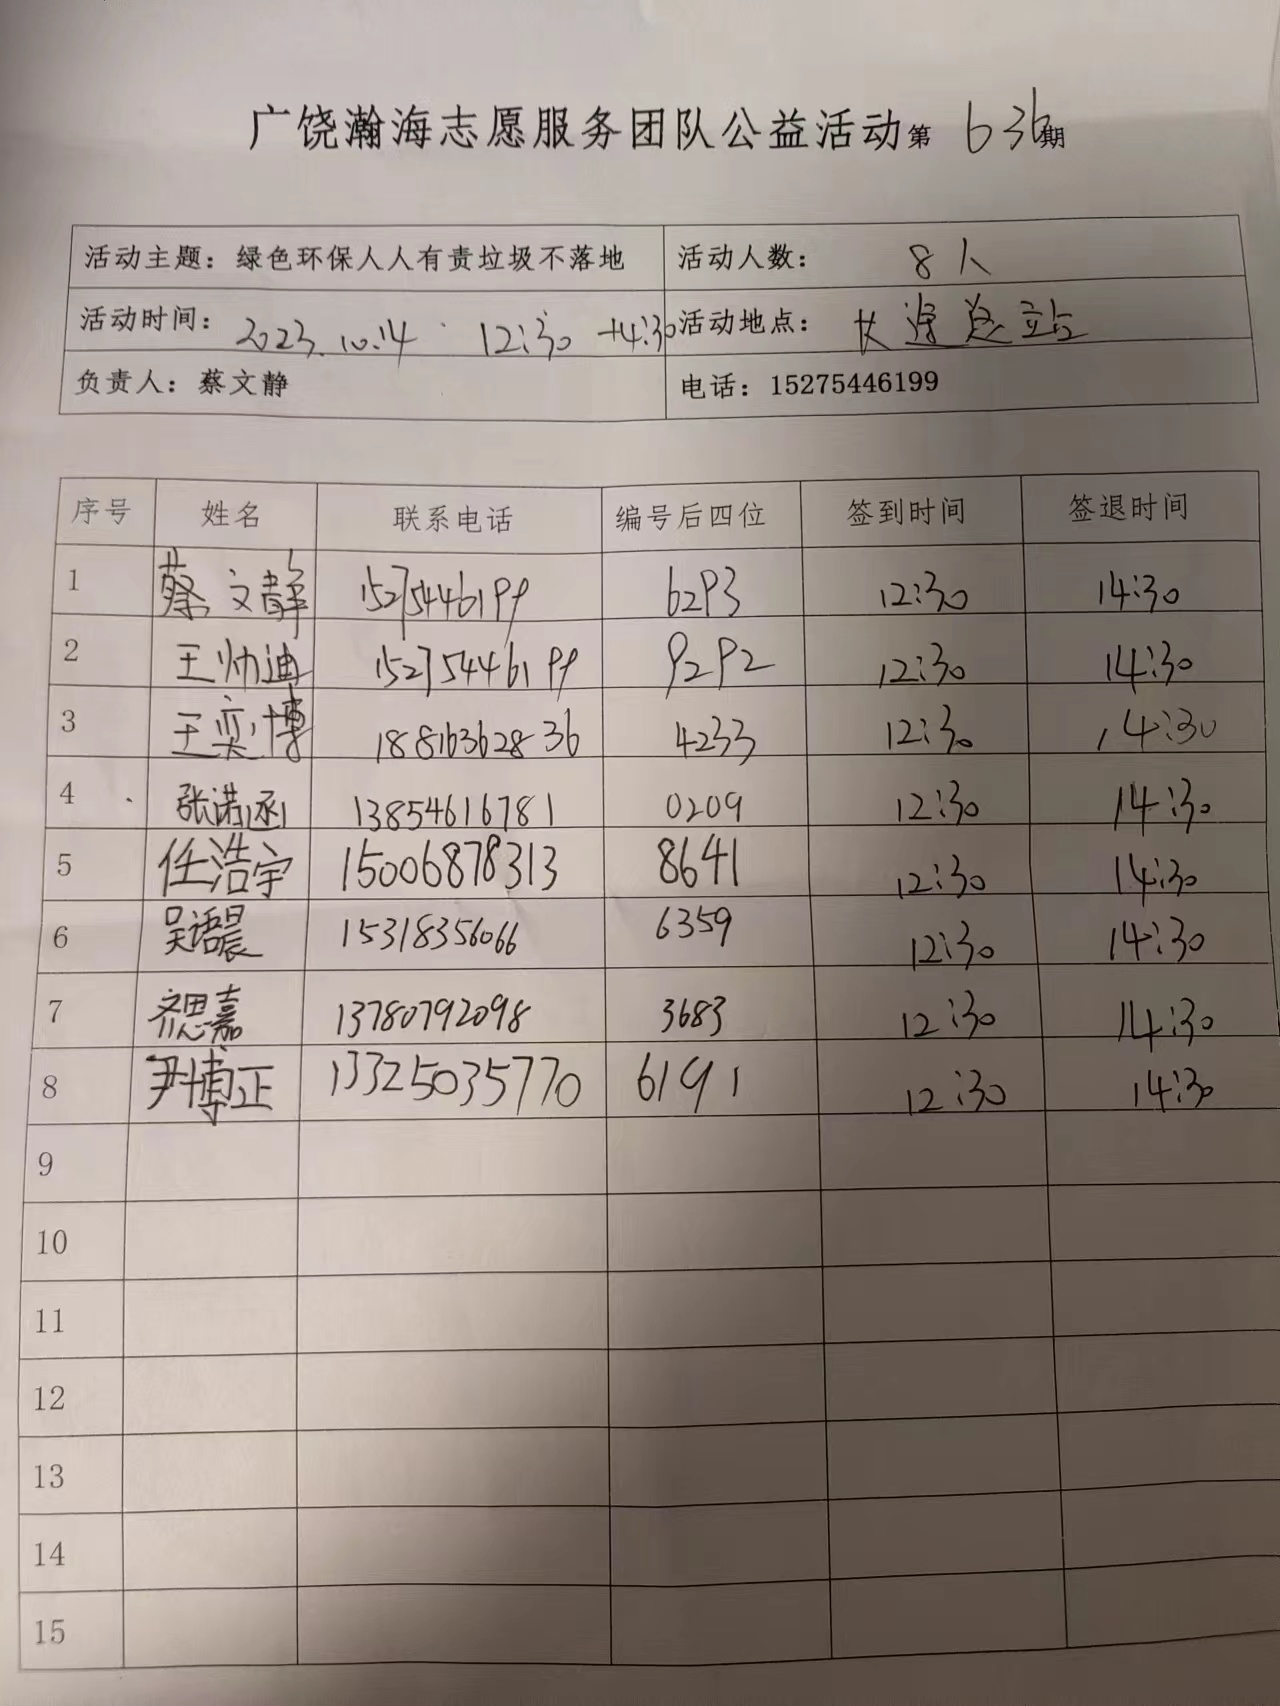 广饶瀚海志愿服务团队公益活动第636期
活动主题：绿色环保人人有责垃圾不落地 活动人数：8人
活动时间：2023.10.14 12:30-14:30 活动地点：长途总站
负责人：蔡文静 电话：15275446199
序号 姓名 联系电话 编号后四位 签到时间 签退时间
1 蔡文静 15275446199 6293 12:30 14:30
2 王帅迪 15275446199 9292 12:30 14:30
3 王奕博 18816362836 4233 12:30 14:30
4 张诺涵 13854616781 0209 12:30 14:30
5 任浩宇 15006878313 8641 12:30 14:30
6 吴语晨 15318356066 6359 12:30 14:30
7 齐思嘉 13780792098 3683 12:30 14:30
8 尹博正 13325035770 6191 12:30 14:30
9
10
11
12
13
14
15